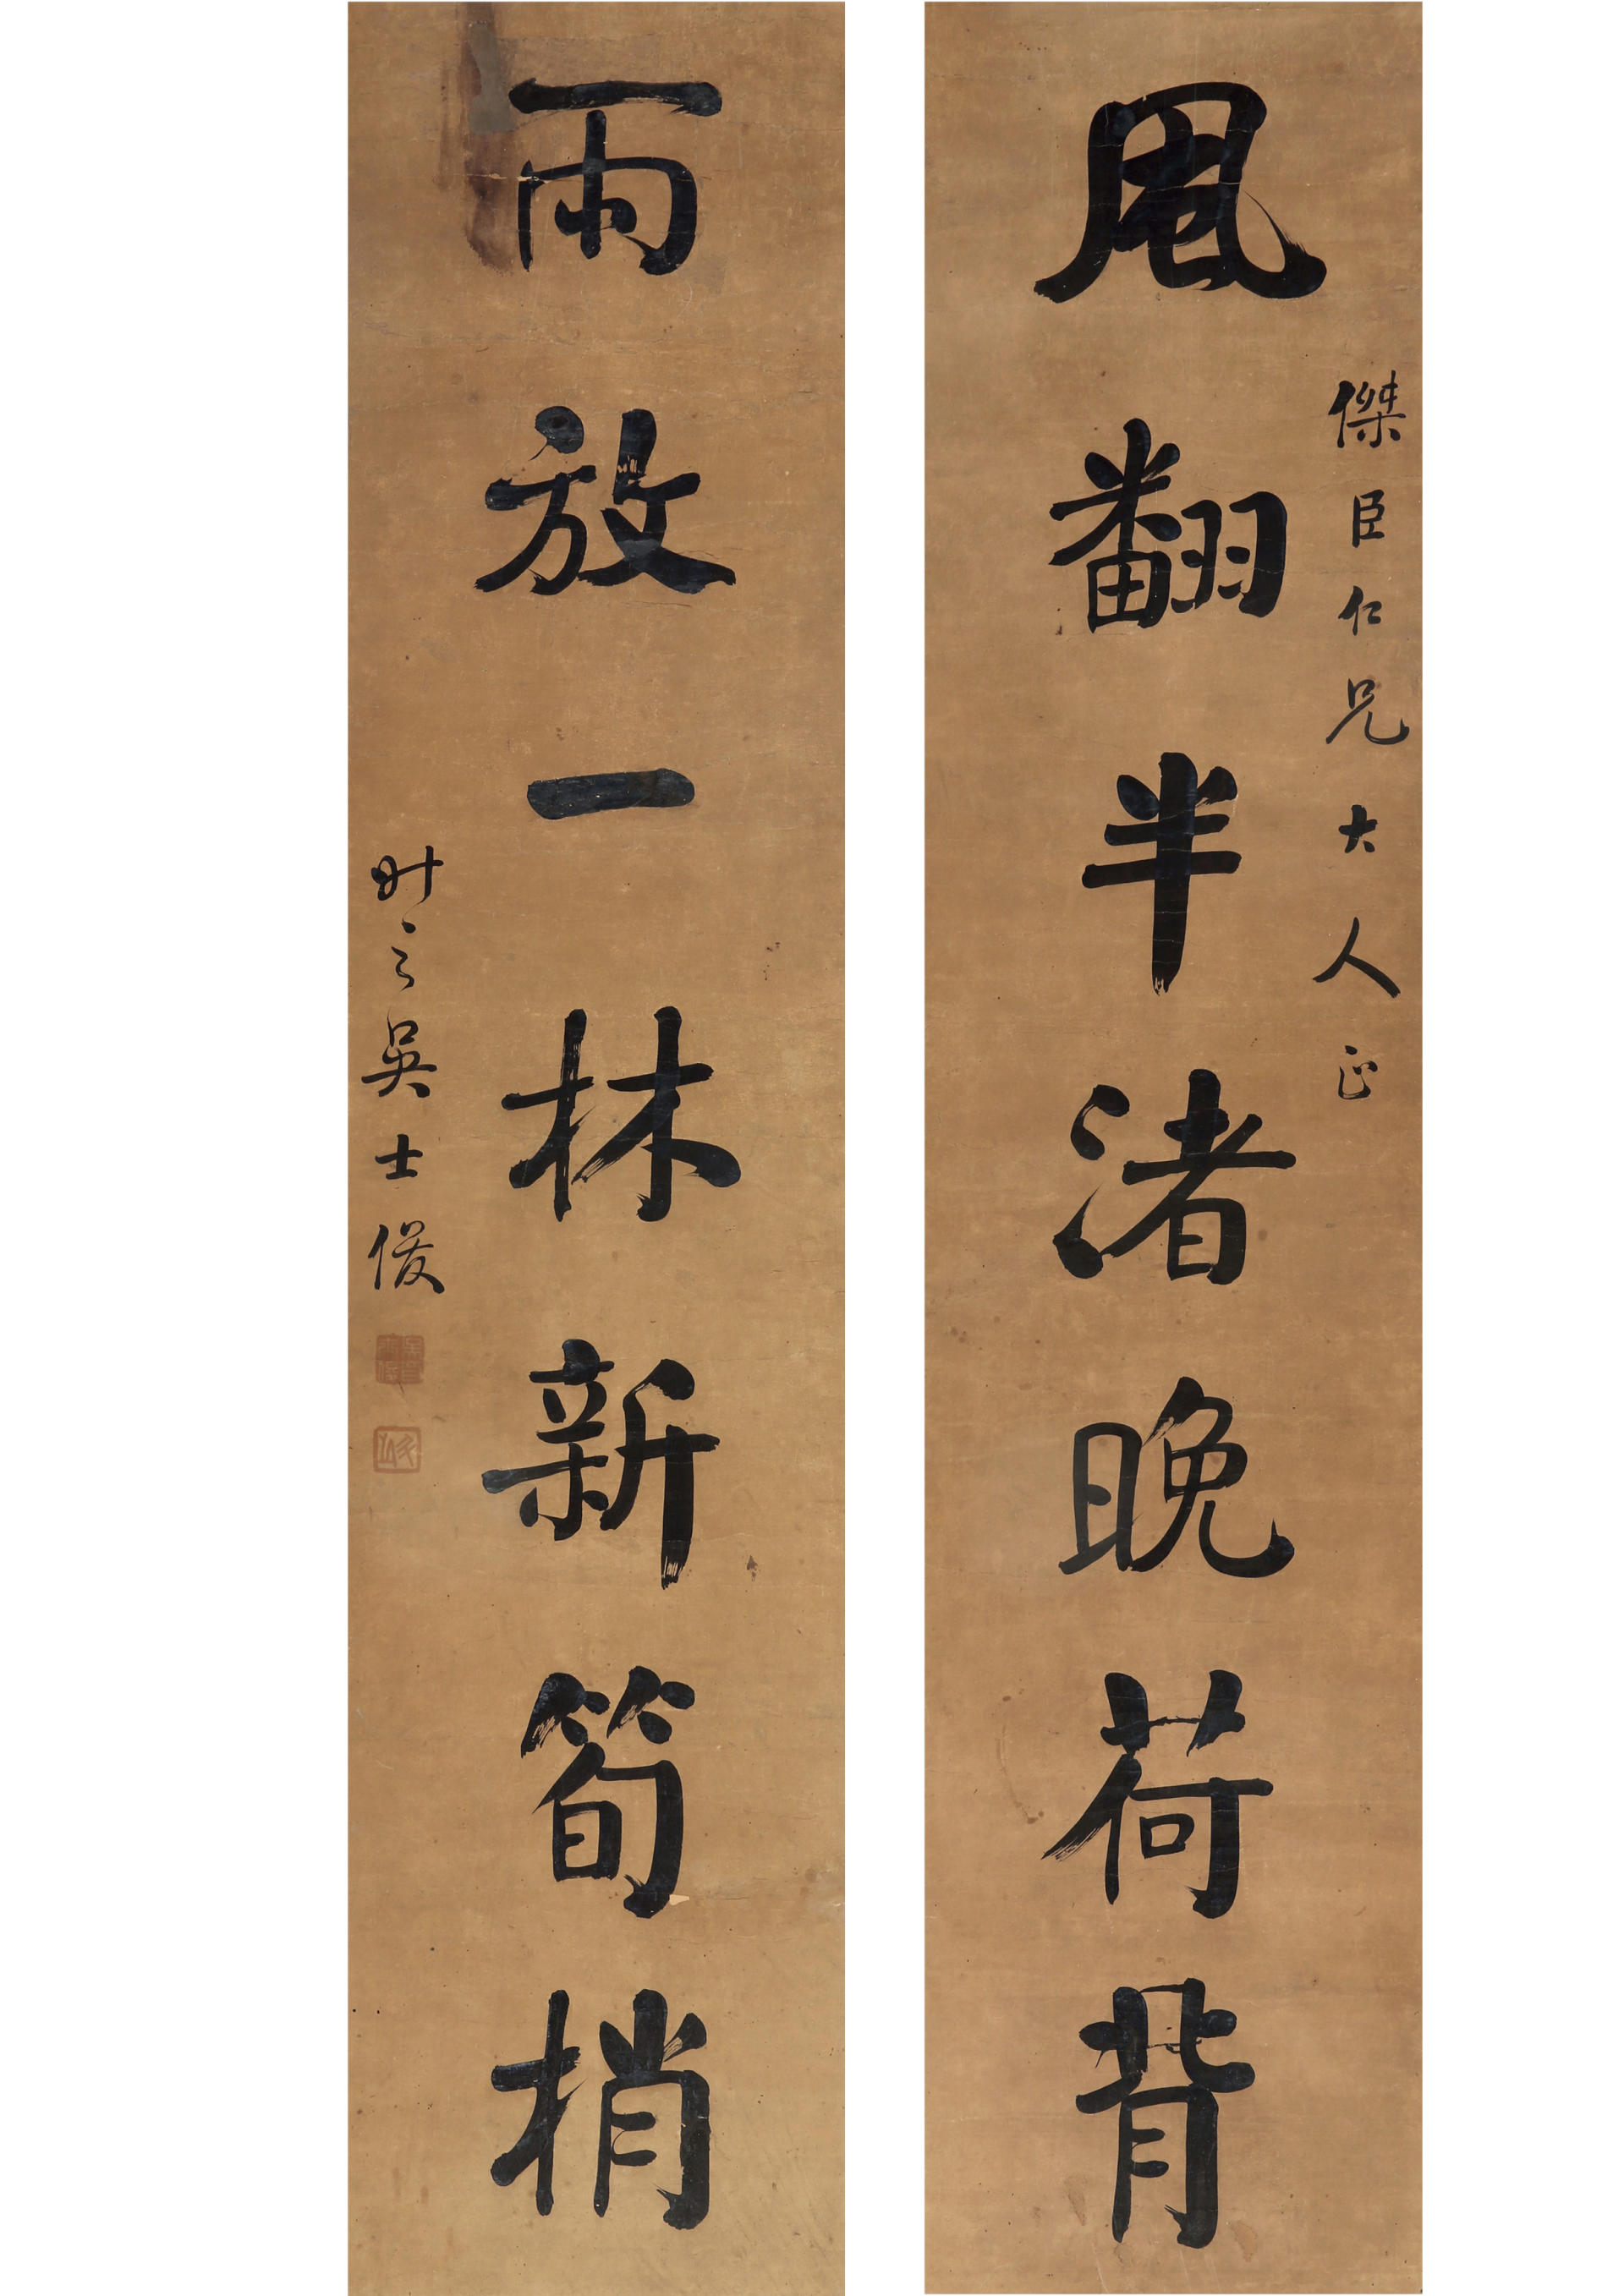 傑臣仁兄大人正
風翻半渚晚荷背
雨放一林新筍梢
吳士俊